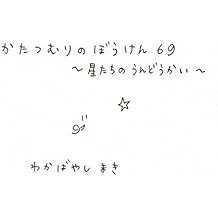 かたつむりのぼうけん 69
～星たちのうんどうかい～
わかばやし まき